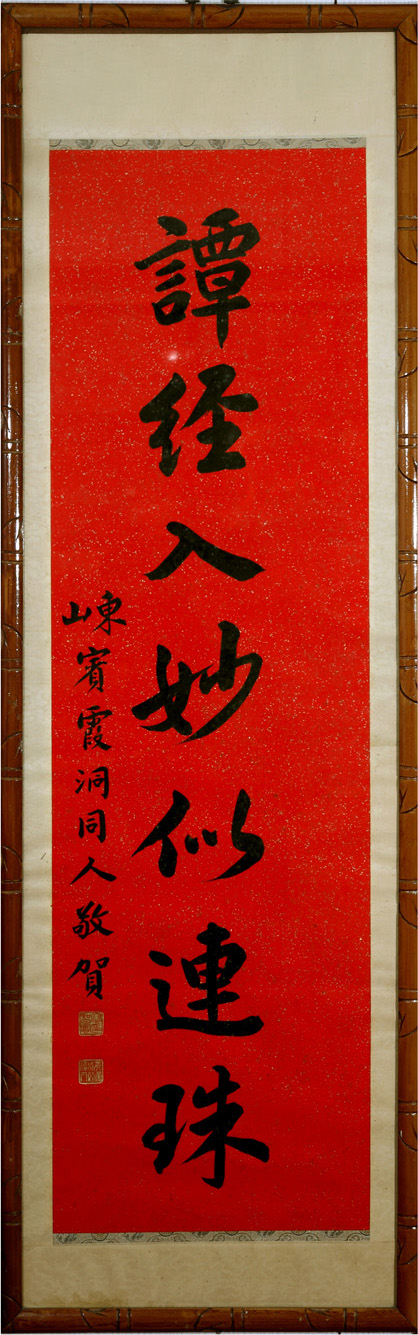 譚經入妙似連珠
崠賓霞洞同人敬賀